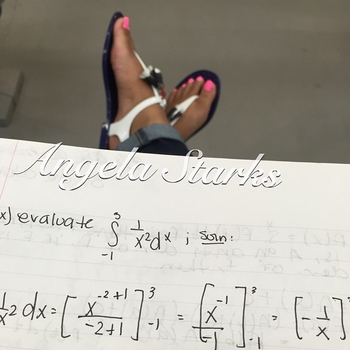 Angela Starks
x) evaluate ∫₋₁³ 1/x² dx ; soln:
1/x² dx = [x^(-2+1)/(-2+1)]₋₁³ = [x⁻¹/-1]₋₁³ = [-1/x]